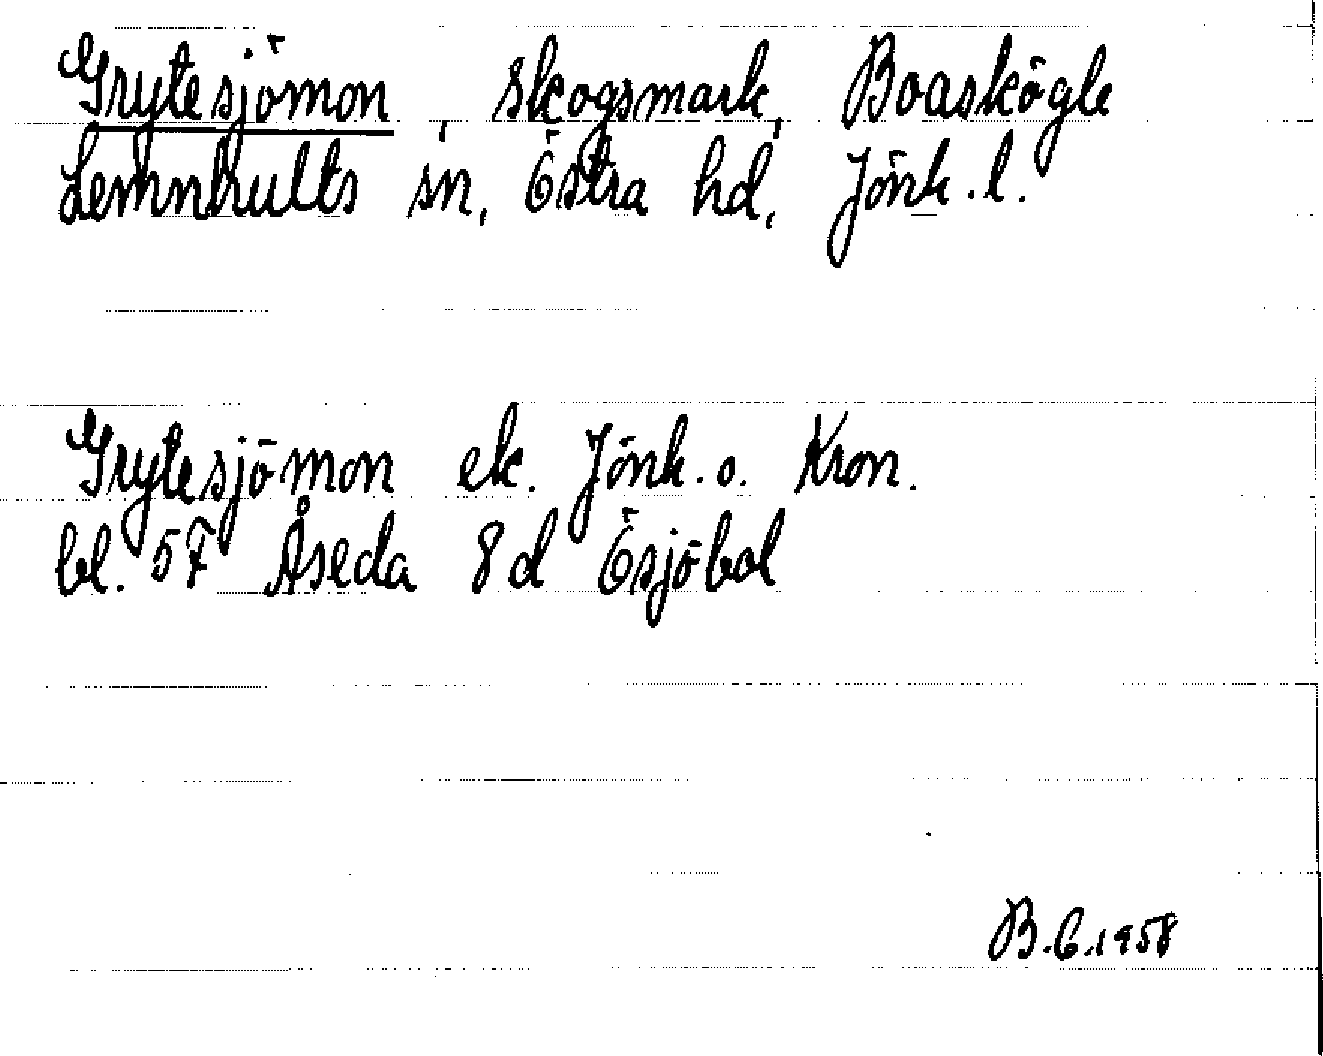 Grytesjömon, skogsmark, Boaskögle
Lemnhults sn, Östra hd, Jönk.l.
Grytesjömon ek. Jönk. o. Kron.
bl. 5F Åseda 8d Ösjöbol
B.Ö.1958